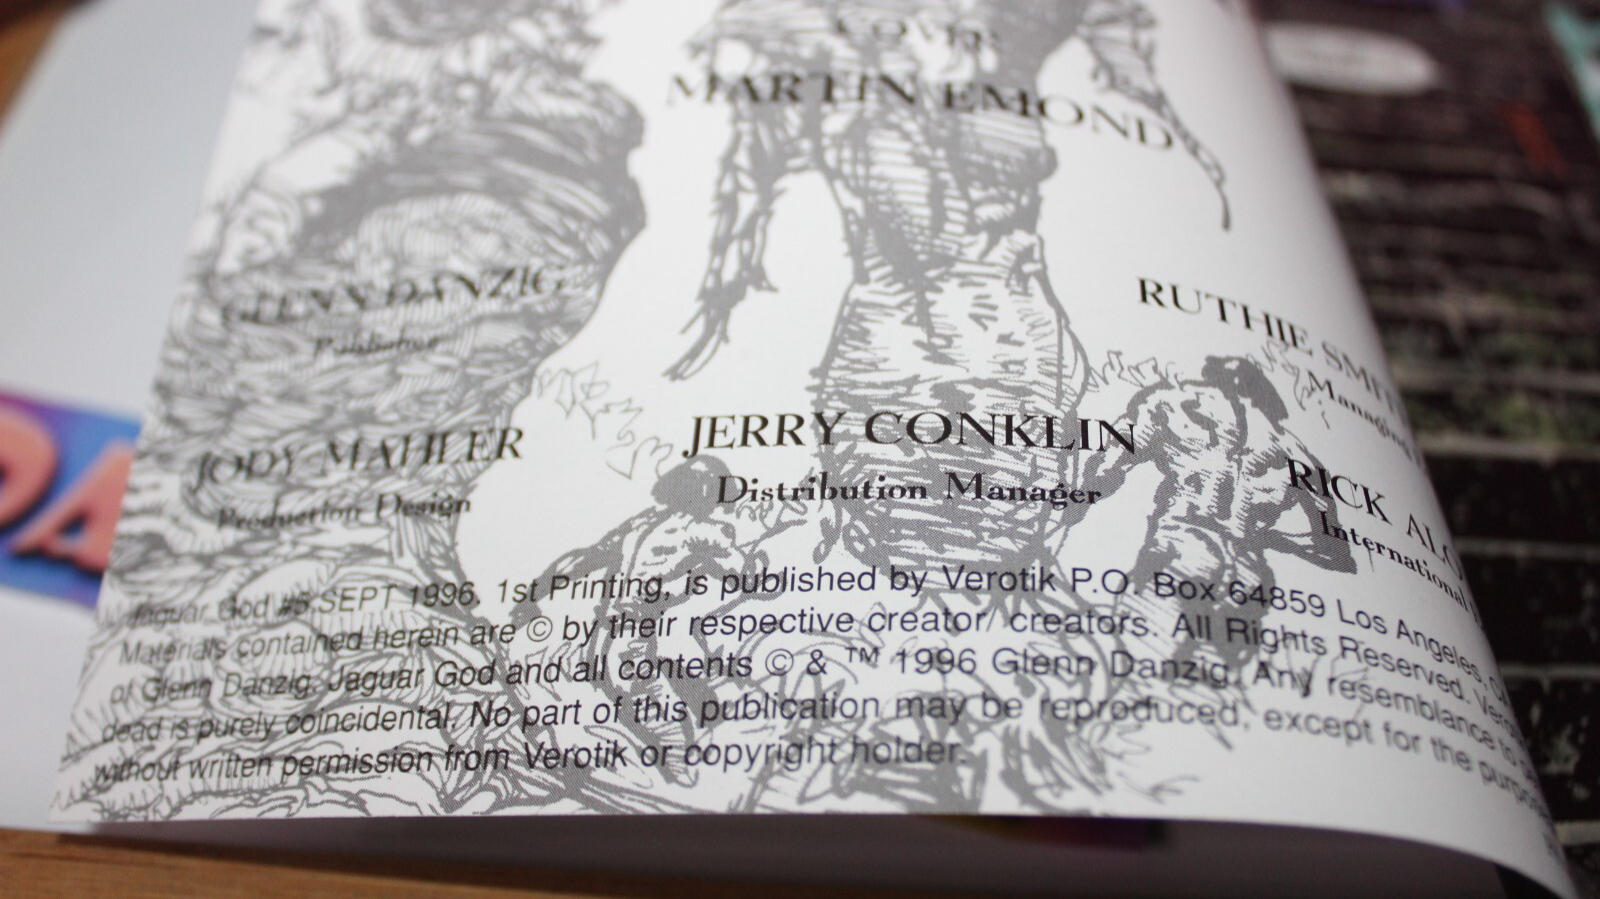 COVER
MARTIN EMOND
GLENN DANZIG
Publisher
RUTHIE
JODY MAHLER
Production Design
JERRY CONKLIN
Distribution Manager
RICK
International
Jaguar God #5, SEPT 1996. 1st Printing, is published by Verotik P.O. Box 64859 Los Angeles,
Materials contained herein are © by their respective creator/ creators. All Rights Reserved.
of Glenn Danzig. Jaguar God and all contents © & ™ 1996 Glenn Danzig. Any resemblance to
dead is purely coincidental. No part of this publication may be reproduced, except for the
without written permission from Verotik or copyright holder.
DA